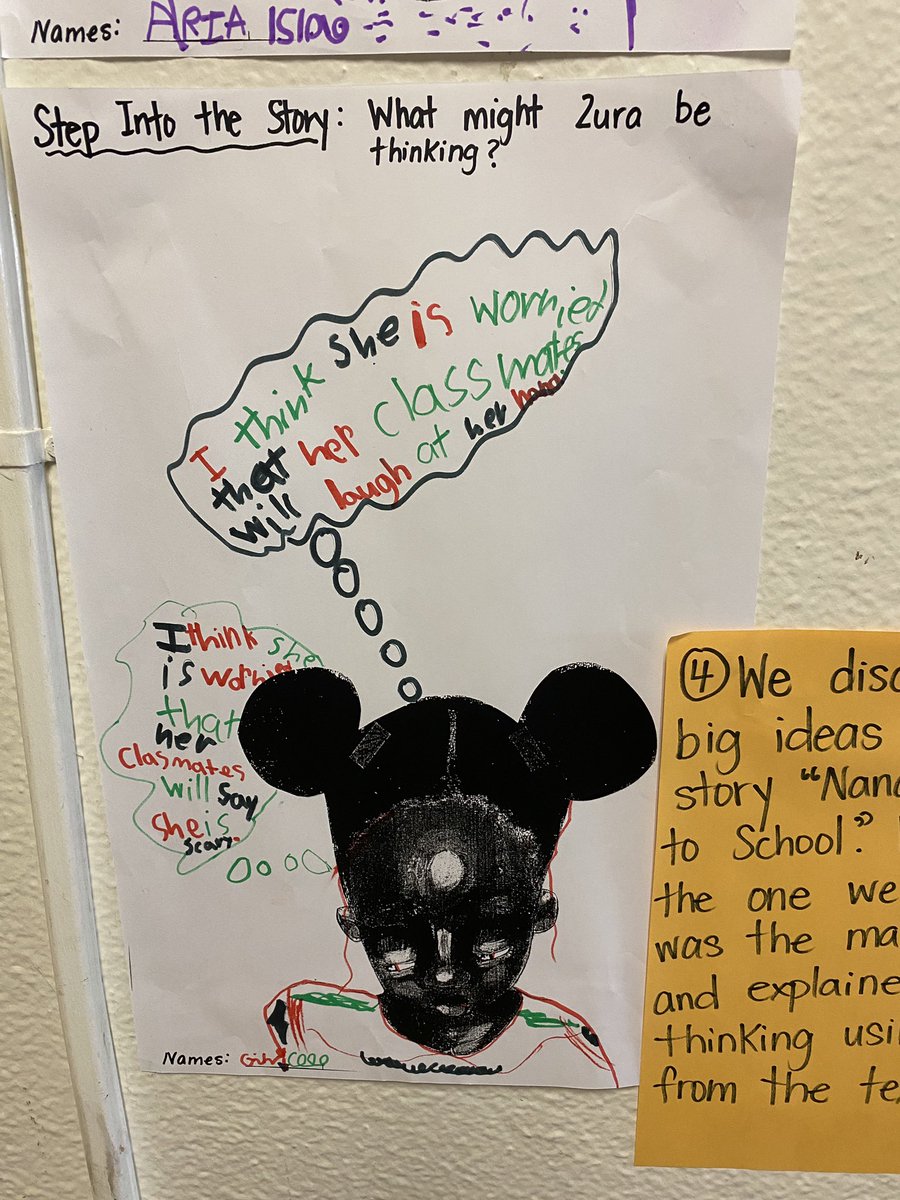 Names: ARIA Isla
Step Into the Story: What might Zura be
thinking?
I think she is worried
that her classmates
will laugh at her
I think she
is worried
that
her
Clasmates
will say
she is
scary.
Names:
④ We disc
big ideas
story "Nana
to School."
the one we
was the ma
and explaine
thinking usi
from the te